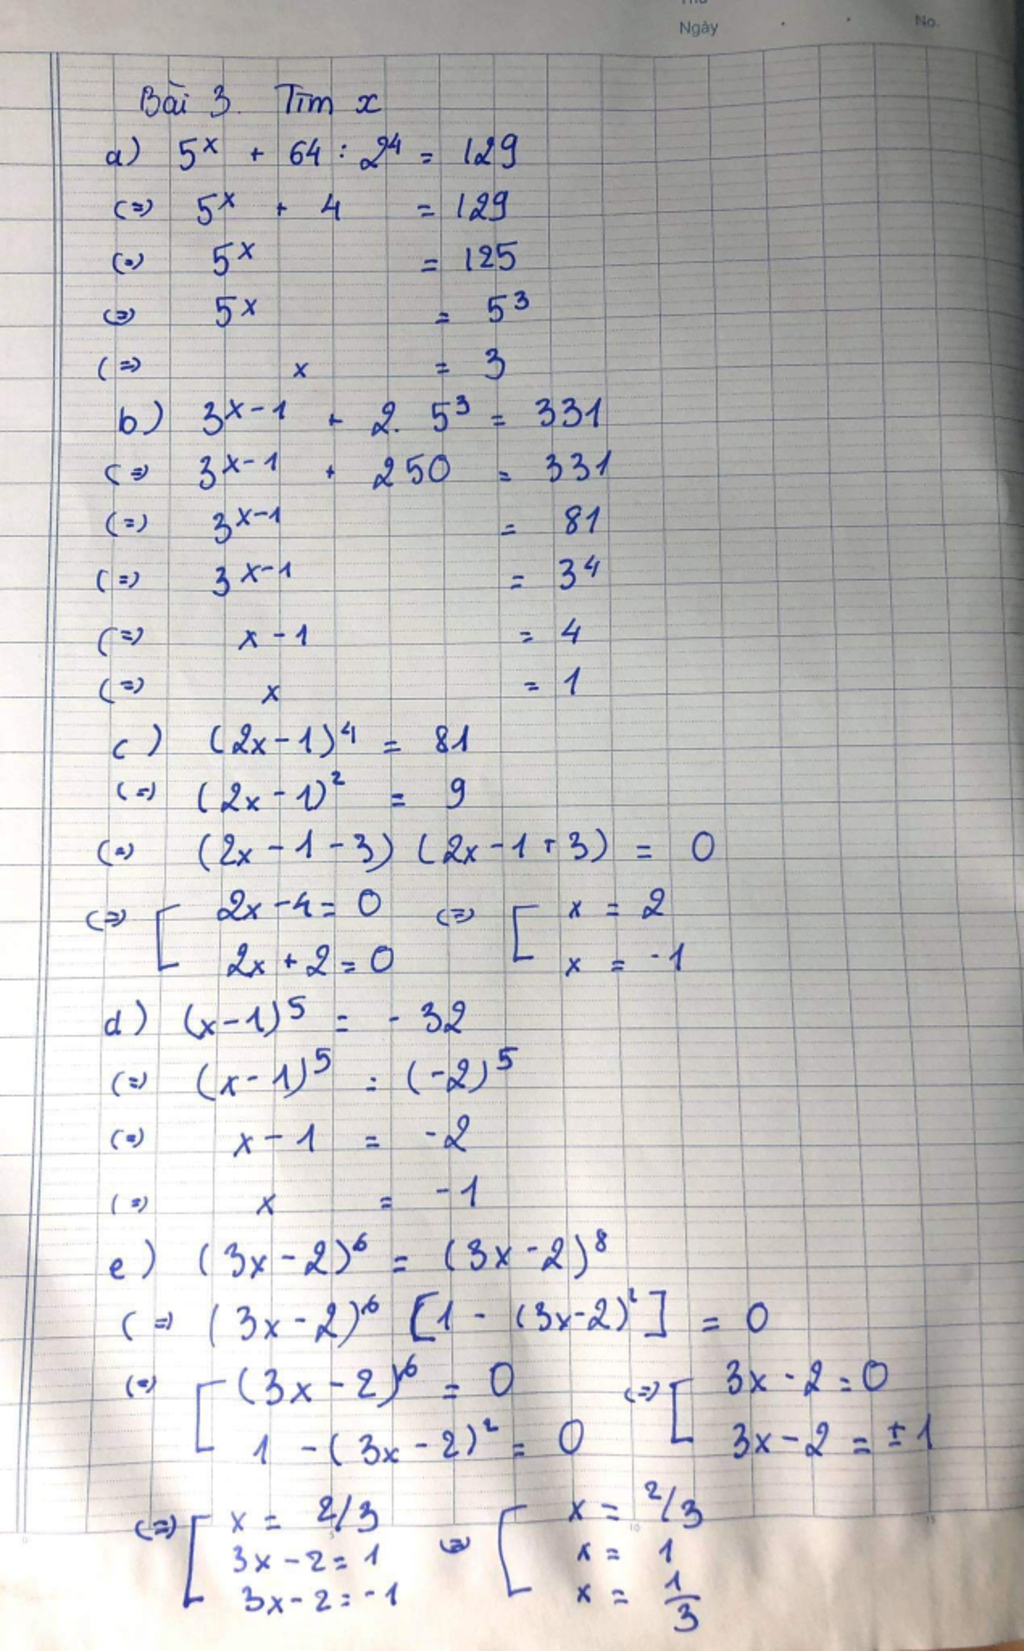 Ngày
No.
Bài 3. Tìm x
a) 5^x + 64 : 2^4 = 129
(=) 5^x + 4 = 129
(=) 5^x = 125
(=) 5^x = 5^3
(=) x = 3
b) 3^x-1 + 2. 5^3 = 331
(=) 3^x-1 + 250 = 331
(=) 3^x-1 = 81
(=) 3^x-1 = 3^4
(=) x - 1 = 4
(=) x = 1
c) (2x-1)^4 = 81
(=) (2x-1)^2 = 9
(=) (2x-1-3) (2x-1+3) = 0
(=) [ 2x-4=0 (=) [ x = 2
2x+2=0 x = -1
d) (x-1)^5 = -32
(=) (x-1)^5 = (-2)^5
(=) x-1 = -2
(=) x = -1
e) (3x-2)^6 = (3x-2)^8
(=) (3x-2)^6 [1 - (3x-2)^2] = 0
(=) [ (3x-2)^6 = 0 (=) [ 3x-2=0
1 - (3x-2)^2 = 0 3x-2 = ±1
(=) [ x = 2/3 (=) [ x = 2/3
3x-2=1 x = 1
3x-2=-1 x = 1/3